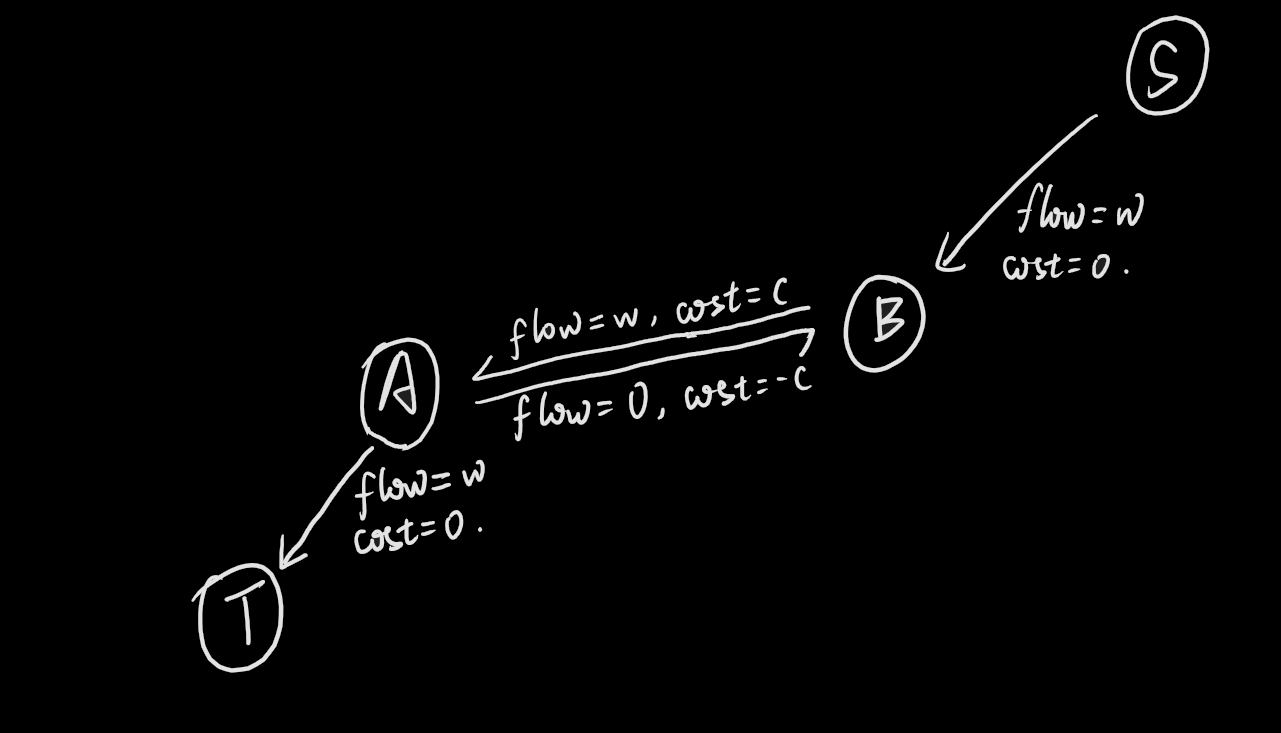 S
flow=w
cost=0.
B
flow=w, cost=c
flow=0, cost=-c
A
flow=w
cost=0.
T